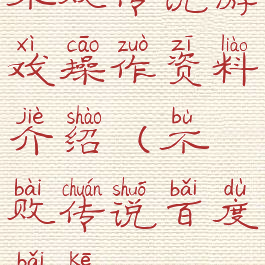 来败传说游
xì cāo zuò zī liào
戏操作资料
jiè shào bù
介绍（不
bài chuán shuō bǎi dù
败传说百度
bǎi kē